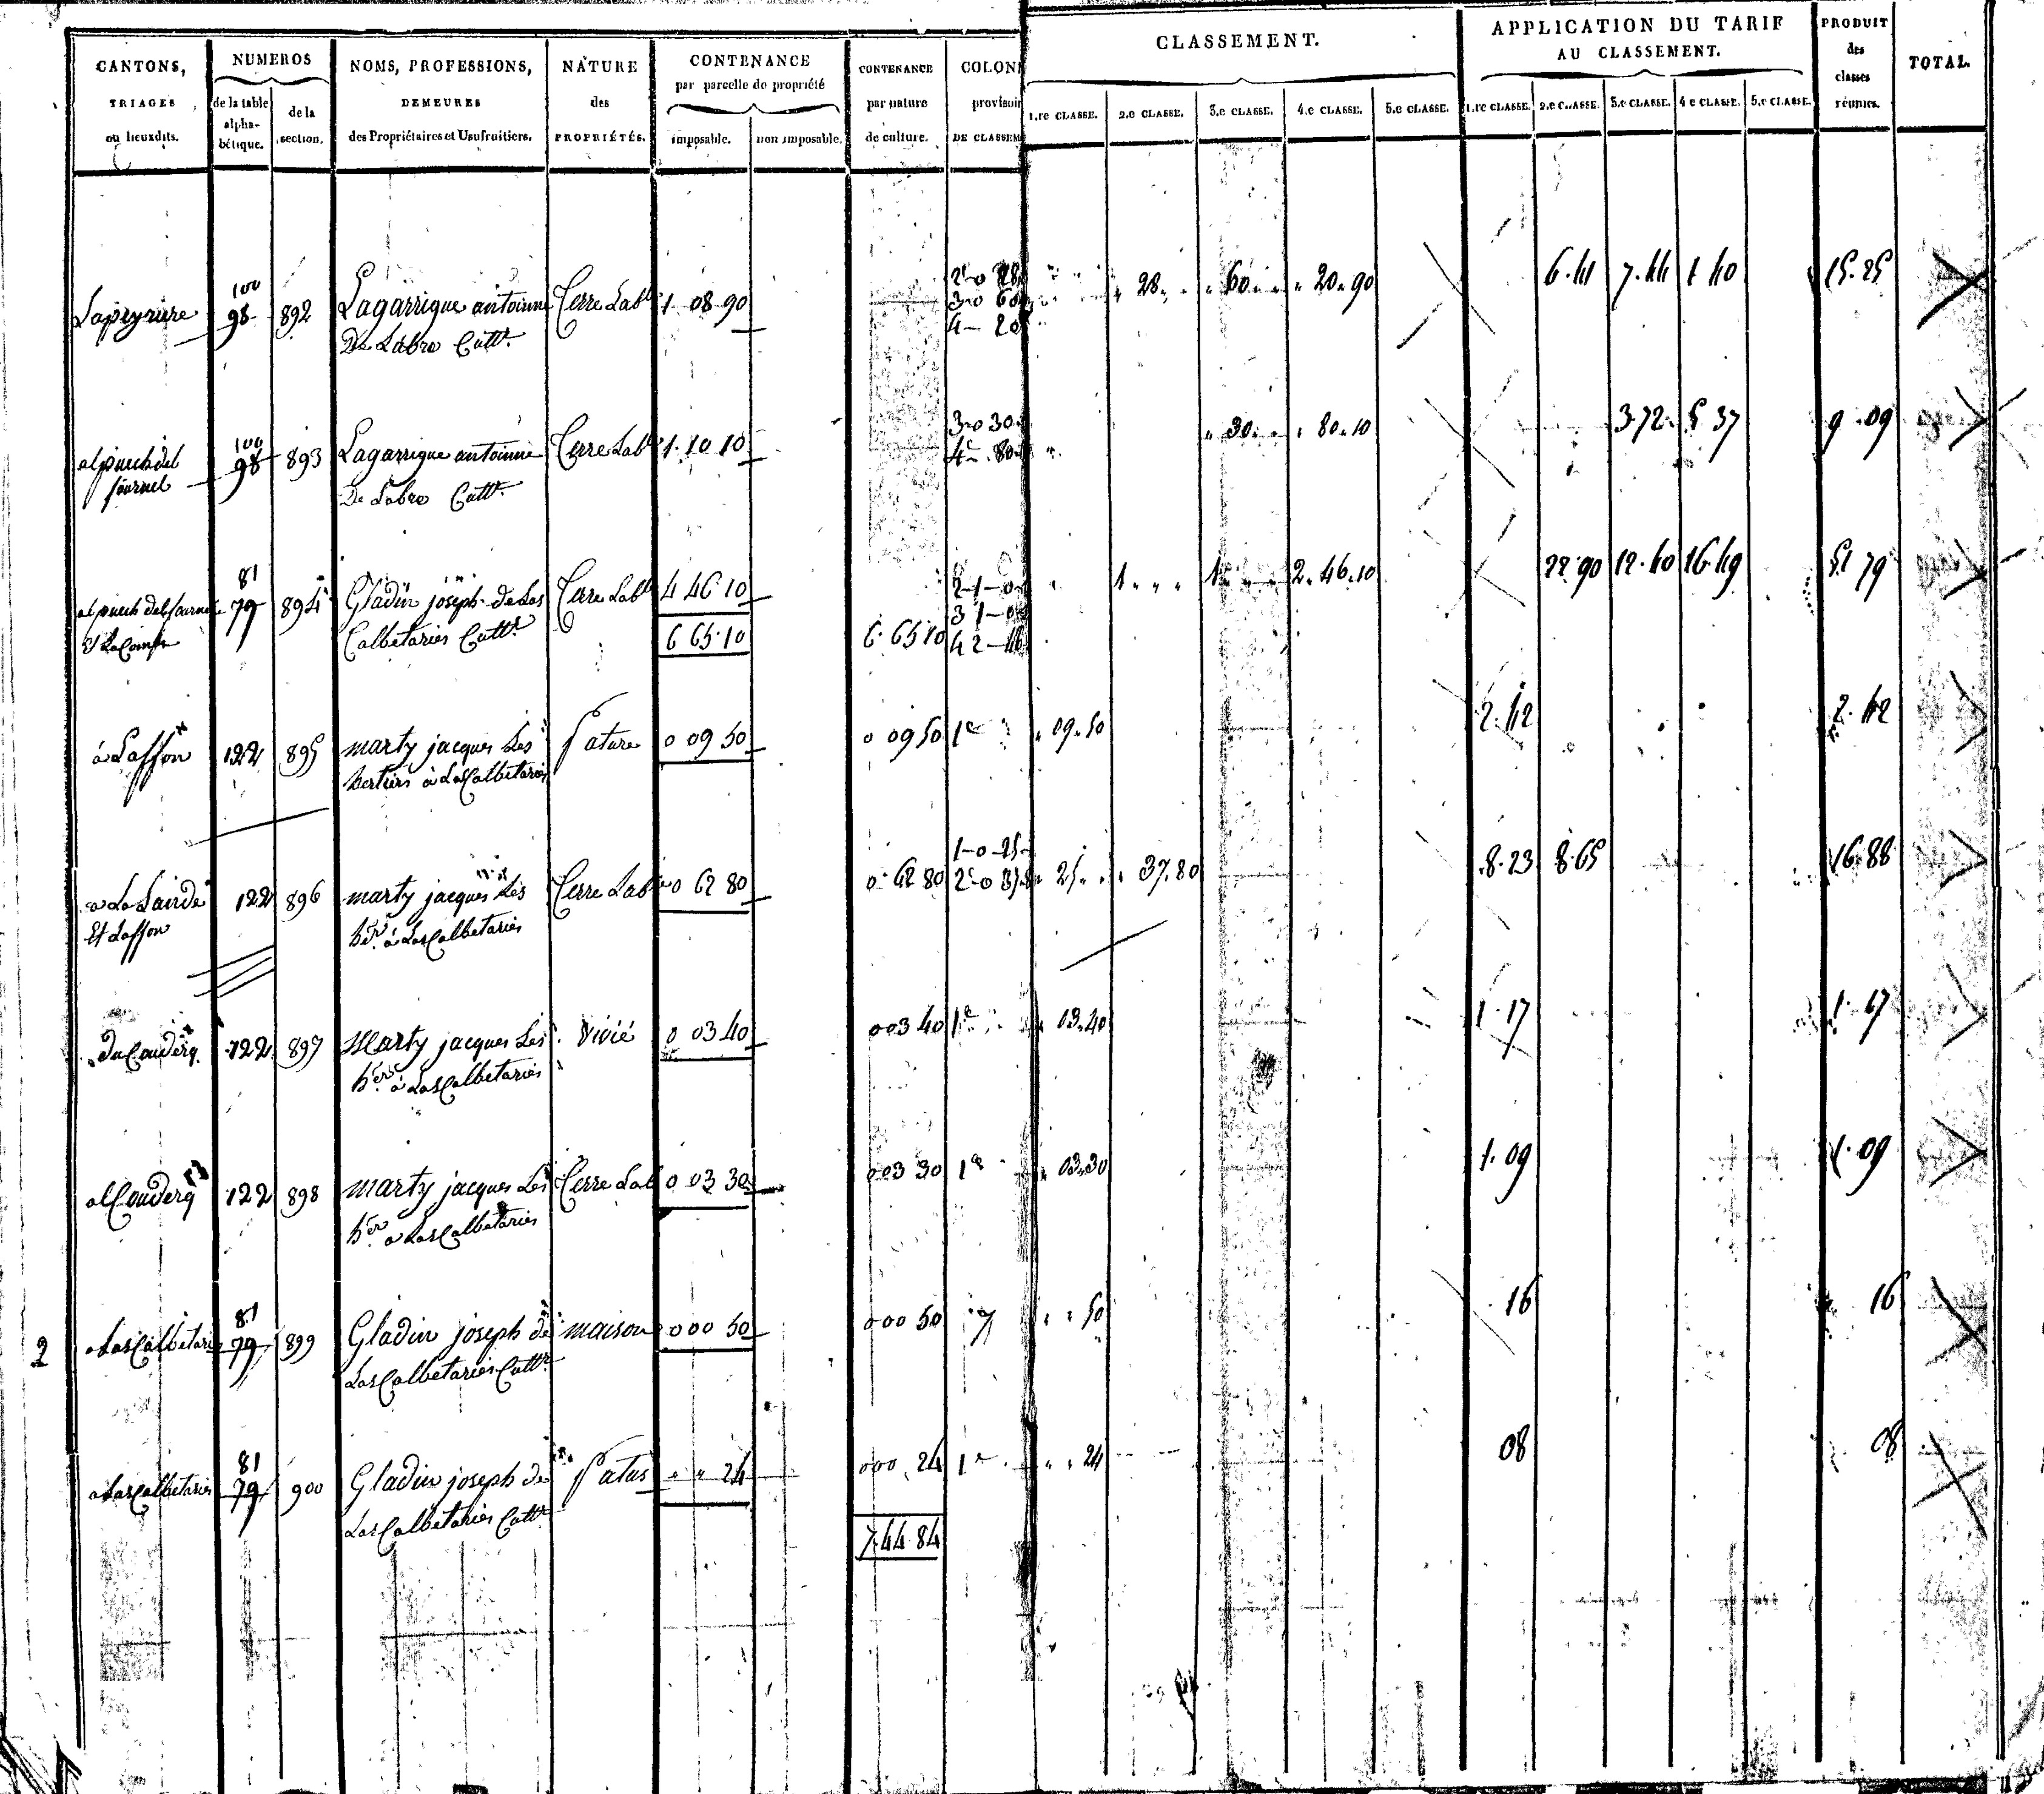 CANTONS, TRIAGES ou lieuxdits.
NUMEROS de la table alphabétique. de la section.
NOMS, PROFESSIONS, DEMEURES des Propriétaires et Usufruitiers.
NATURE des PROPRIÉTÉS.
CONTENANCE par parcelle de propriété imposable. non imposable.
CONTENANCE par nature de culture.
COLON provisoir DE CLASSEM
CLASSEMENT.
1.re CLASSE. 2.e CLASSE. 3.e CLASSE. 4.e CLASSE. 5.e CLASSE.
APPLICATION DU TARIF AU CLASSEMENT.
1.re CLASSE. 2.e CLASSE. 3.e CLASSE. 4.e CLASSE. 5.e CLASSE.
PRODUIT des classes réunies.
TOTAL.
100 2e 0 28
Lapeyriere 98 892 Lagarrigue antoinne Terre Lable 1 08 90 3 0 60 " 28 " " 60 " " 20 90 6.41 7.44 1 40 15.25
De Labro Cultr. 4 20
100 3 0 30
al puech del 98 893 Lagarrigue antoinne Terre Labl 1 10 10 4e 80 " 30 " " 80.10 3.72 5 37 9.09
fournel De Labro Cultr.
81
al puech del fournel 79 894 Gladin joseph de Las Terre Labl 4 46 10 2 1 0 1 " " 1 " " 2.46.10 22.90 12.40 16.49 51 79
Et La Combe Calbetaries Cultr. 6 65.10 6.65 10 3 1 0
4 2 46
à Laffon 122 895 marty jacques Les Pature 0 09 50 0 09 50 1e " 09.50 2.42 2.42
hertiers à Las Calbetaries
1 0 25
122 896 marty jacques Les Terre Lab 0 62 80 0 62 80 2e 0 37.8 " 25 " " 37.80 8.23 8.65 16.88
Et Laffon her. à Las Calbetaries
du Couderq 122 897 Marty jacques Les Vivié 0 03 40 0 03 40 1e " 03.40 1.17 1.17
her. à Las Calbetaries
al Couderq 122 898 marty jacques Les Terre Lab 0 03 30 0 03 30 1e " 03.30 1.09 1.09
her. a Las Calbetaries
81
2 a Las Calbetaries 79 899 Gladin joseph de maison 0 00 50 0 00 50 " " 50 16 16
Las Calbetaries Cultr
81
a Las Calbetaries 79 900 Gladin joseph de Patus " " 24 0 00 24 1e " " 24 08 08
Las Calbetaries Cultr
7.44 84